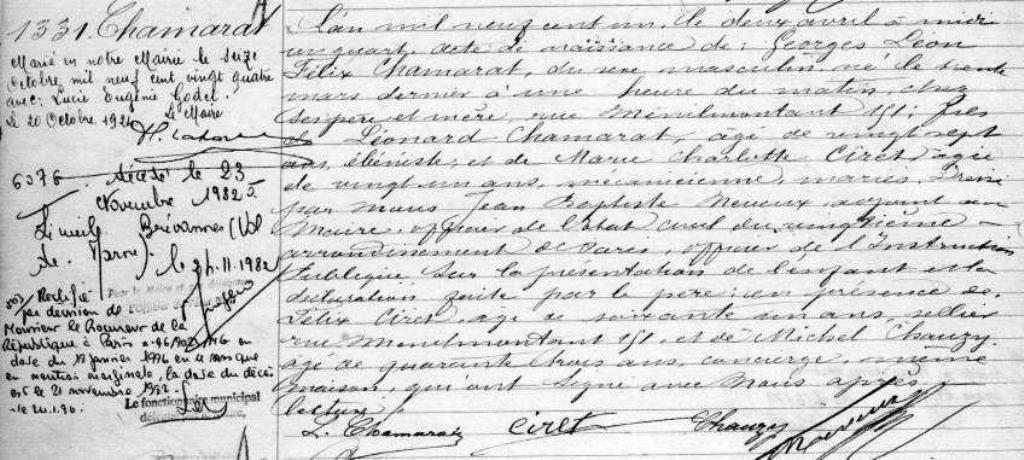 1331. Chamarat
Marié en notre Mairie le seize
Octobre mil neuf cent vingt quatre
avec: Lucie Eugénie Godel.
Le 20 Octobre 1924 Le Maire
6076. décédé le 23
Novembre 1982 à
Limeil Brévannes (Val
de Marne). le 24.11.1982
Pour le Maire et par délégation
L'Officier de
Rectifié
par décision de
Monsieur le Procureur de la
République à Paris n° 96/902 en
date du 17 janvier 1996 en ce sens que
en mention marginale, la date du décès
est le 21 novembre 1982.
le 22.1.96.
Le fonctionnaire municipal
L'an mil neuf cent un, le deux avril à midi
un quart, acte de naissance de: Georges Léon
Félix Chamarat, du sexe masculin, né le trente
mars dernier à une heure du matin, chez
ses père et mère, rue Ménilmontant 151; fils
de Léonard Chamarat, âgé de vingt-sept
ans, ébéniste, et de Marie Charlotte Ciret âgée
de vingt-un ans, mécanicienne, mariés. Dressé
par nous Jean Baptiste Neveux, adjoint au
Maire, officier de l'état civil du vingtième
arrondissement de Paris, officier de l'Instruction
Publique sur la présentation de l'enfant et la
déclaration faite par le père; en présence de
Félix Ciret, âgé de soixante un ans, sellier
rue Ménilmontant 151, et de Michel Chauzy
âgé de quarante trois ans, concierge, même
maison, qui ont signé avec Nous après
lecture.
L. Chamarat Ciret Chauzy